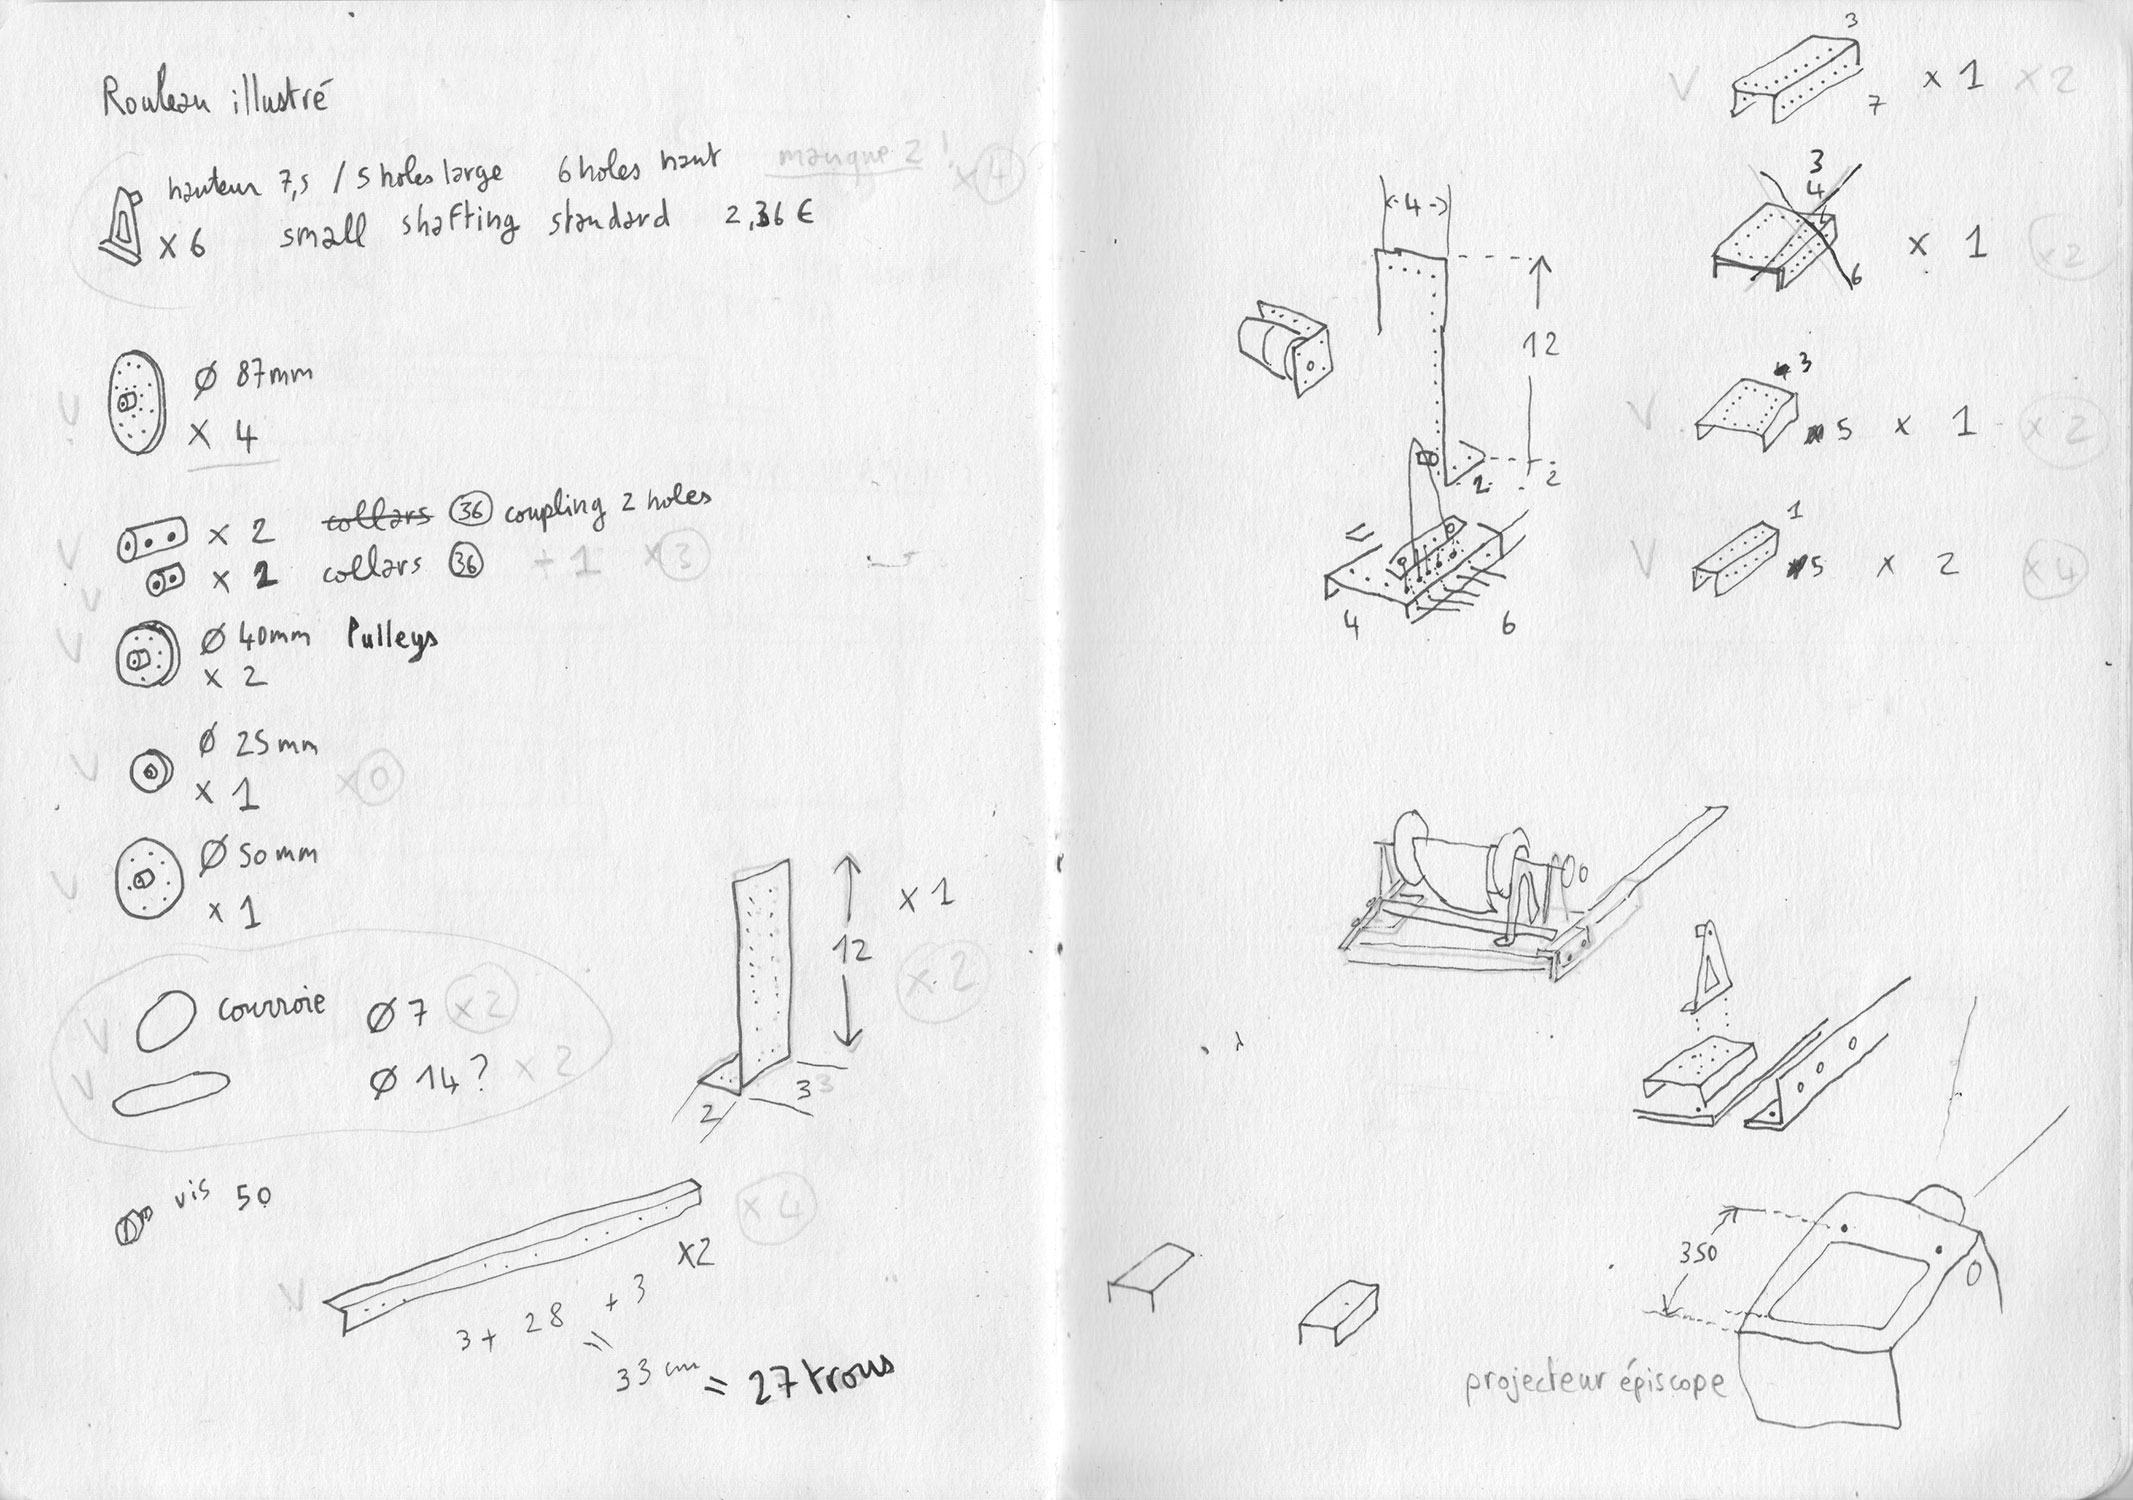 Rouleau illustré
hauteur 7,5 / 5 holes large 6 holes haut
manque 2 ! x 4
x 6 small shafting standard 2,36 €
Ø 87mm
x 4
V
x 2 collars 36 coupling 2 holes
V
x 2 collars 36 + 1 x 3
V
V
Ø 40mm Pulleys
x 2
V
Ø 25mm
x 1
x 0
V
Ø 50mm
x 1
V
courroie Ø 7 x 2
V
Ø 14 ? x 2
V
vis 50
12
x 1
x 2
2
3 3
V
x2
x 4
3 + 28 + 3
=
33 cm = 27 trous
4
12
2
2
=
4
6
V
3
7
x 1 x 2
3
4
6
x 1 x 2
V
3
5 x 1 x 2
V
1
5 x 2 x 4
350
projecteur épiscope